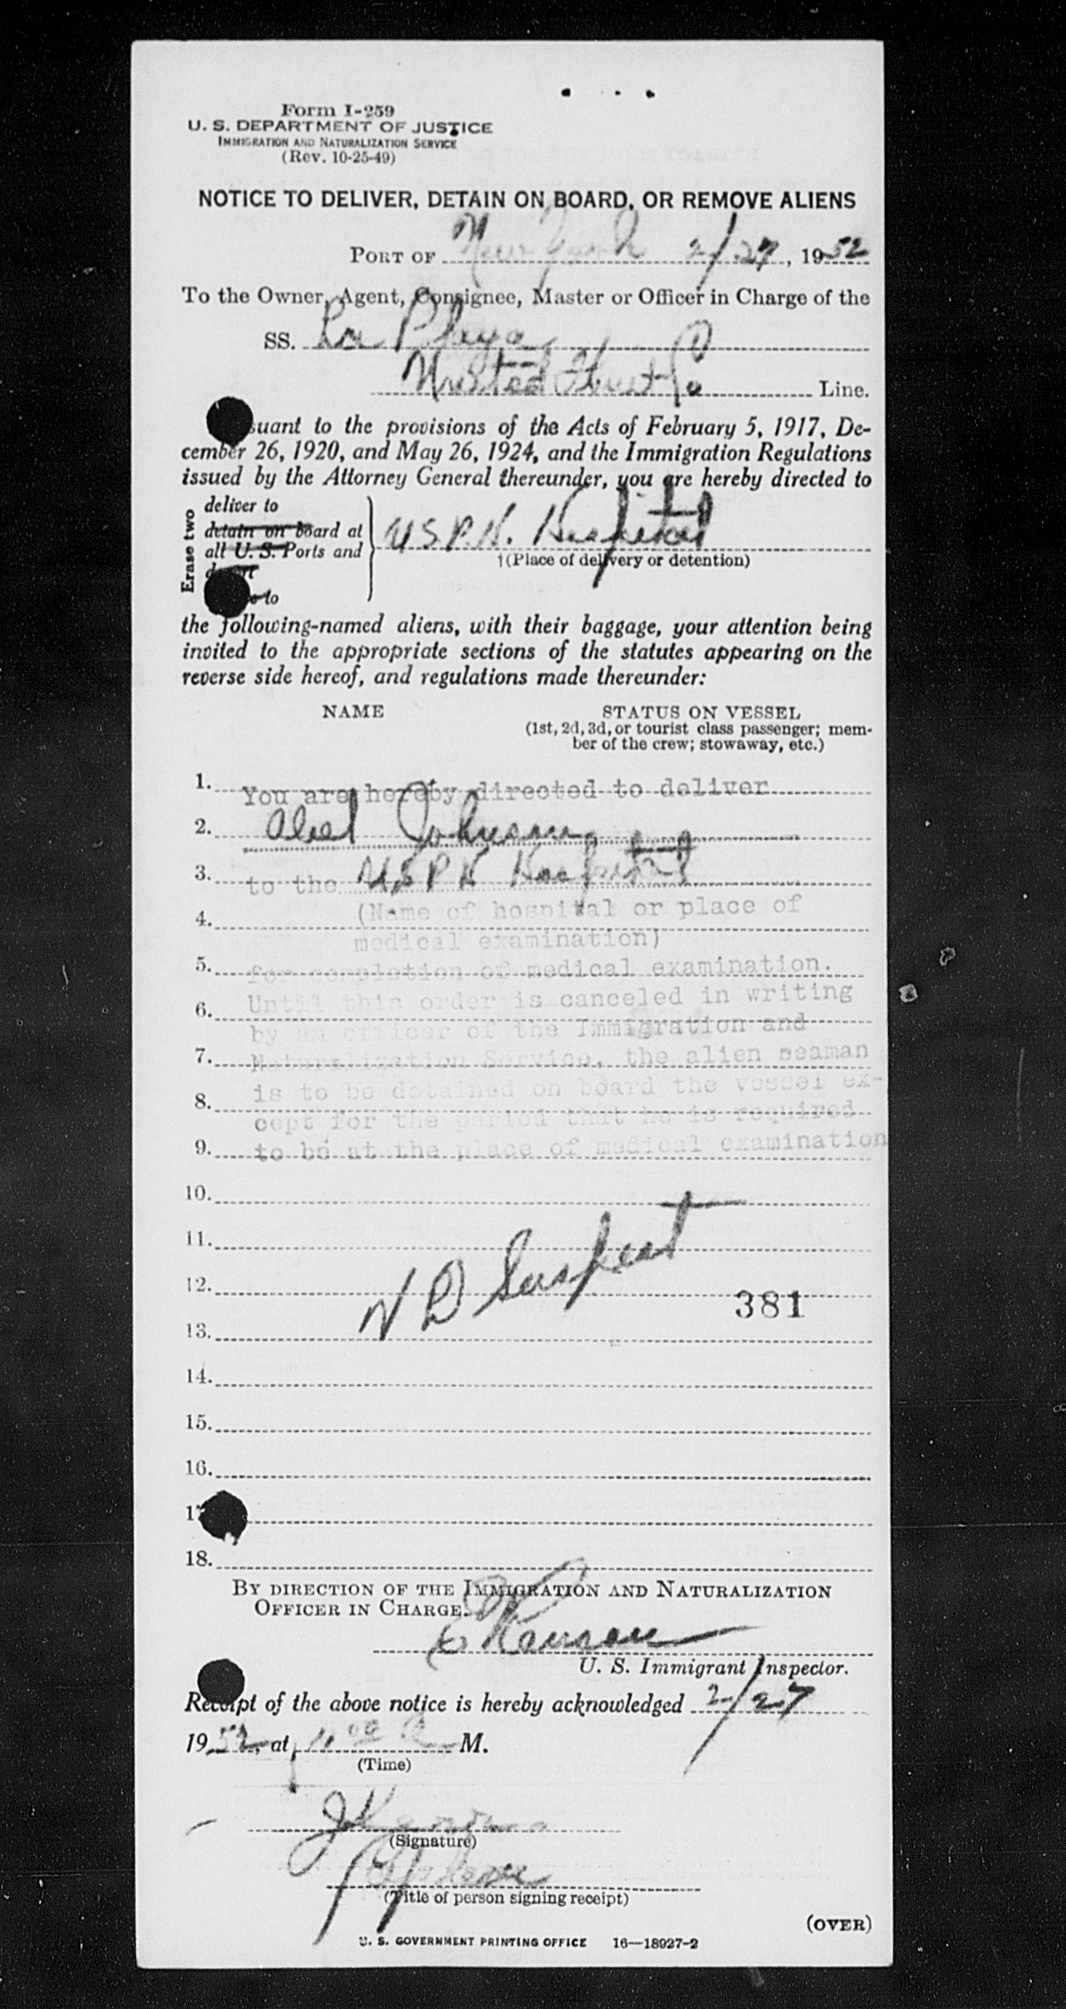 Form I-259
U. S. DEPARTMENT OF JUSTICE
IMMIGRATION AND NATURALIZATION SERVICE
(Rev. 10-25-49)
NOTICE TO DELIVER, DETAIN ON BOARD, OR REMOVE ALIENS
PORT OF New York 2/27, 1952
To the Owner, Agent, Consignee, Master or Officer in Charge of the
SS. La Playa
United Fruit Co Line.
suant to the provisions of the Acts of February 5, 1917, De-
cember 26, 1920, and May 26, 1924, and the Immigration Regulations
issued by the Attorney General thereunder, you are hereby directed to
Erase two
deliver to
detain on board at
all U. S. Ports and
to
U.S.P.H. Hospital
†(Place of delivery or detention)
the following-named aliens, with their baggage, your attention being
invited to the appropriate sections of the statutes appearing on the
reverse side hereof, and regulations made thereunder:
NAME STATUS ON VESSEL
(1st, 2d, 3d, or tourist class passenger; mem-
ber of the crew; stowaway, etc.)
1. You are hereby directed to deliver
2. Abel Johnson
3. to the USPH Hospital
4. (Name of hospital or place of
medical examination)
5. for completion of medical examination.
6. Until this order is canceled in writing
by an officer of the Immigration and
7. Naturalization Service, the alien seaman
is to be detained on board the vessel ex-
8. cept for the period that he is required
9. to be at the place of medical examination
10.
11.
12. VD Suspect
381
13.
14.
15.
16.
17
18.
BY DIRECTION OF THE IMMIGRATION AND NATURALIZATION
OFFICER IN CHARGE.
U. S. Immigrant Inspector.
Receipt of the above notice is hereby acknowledged 2/27
1952, at M.
(Time)
(Signature)
(Title of person signing receipt)
(OVER)
U. S. GOVERNMENT PRINTING OFFICE 16—18927-2